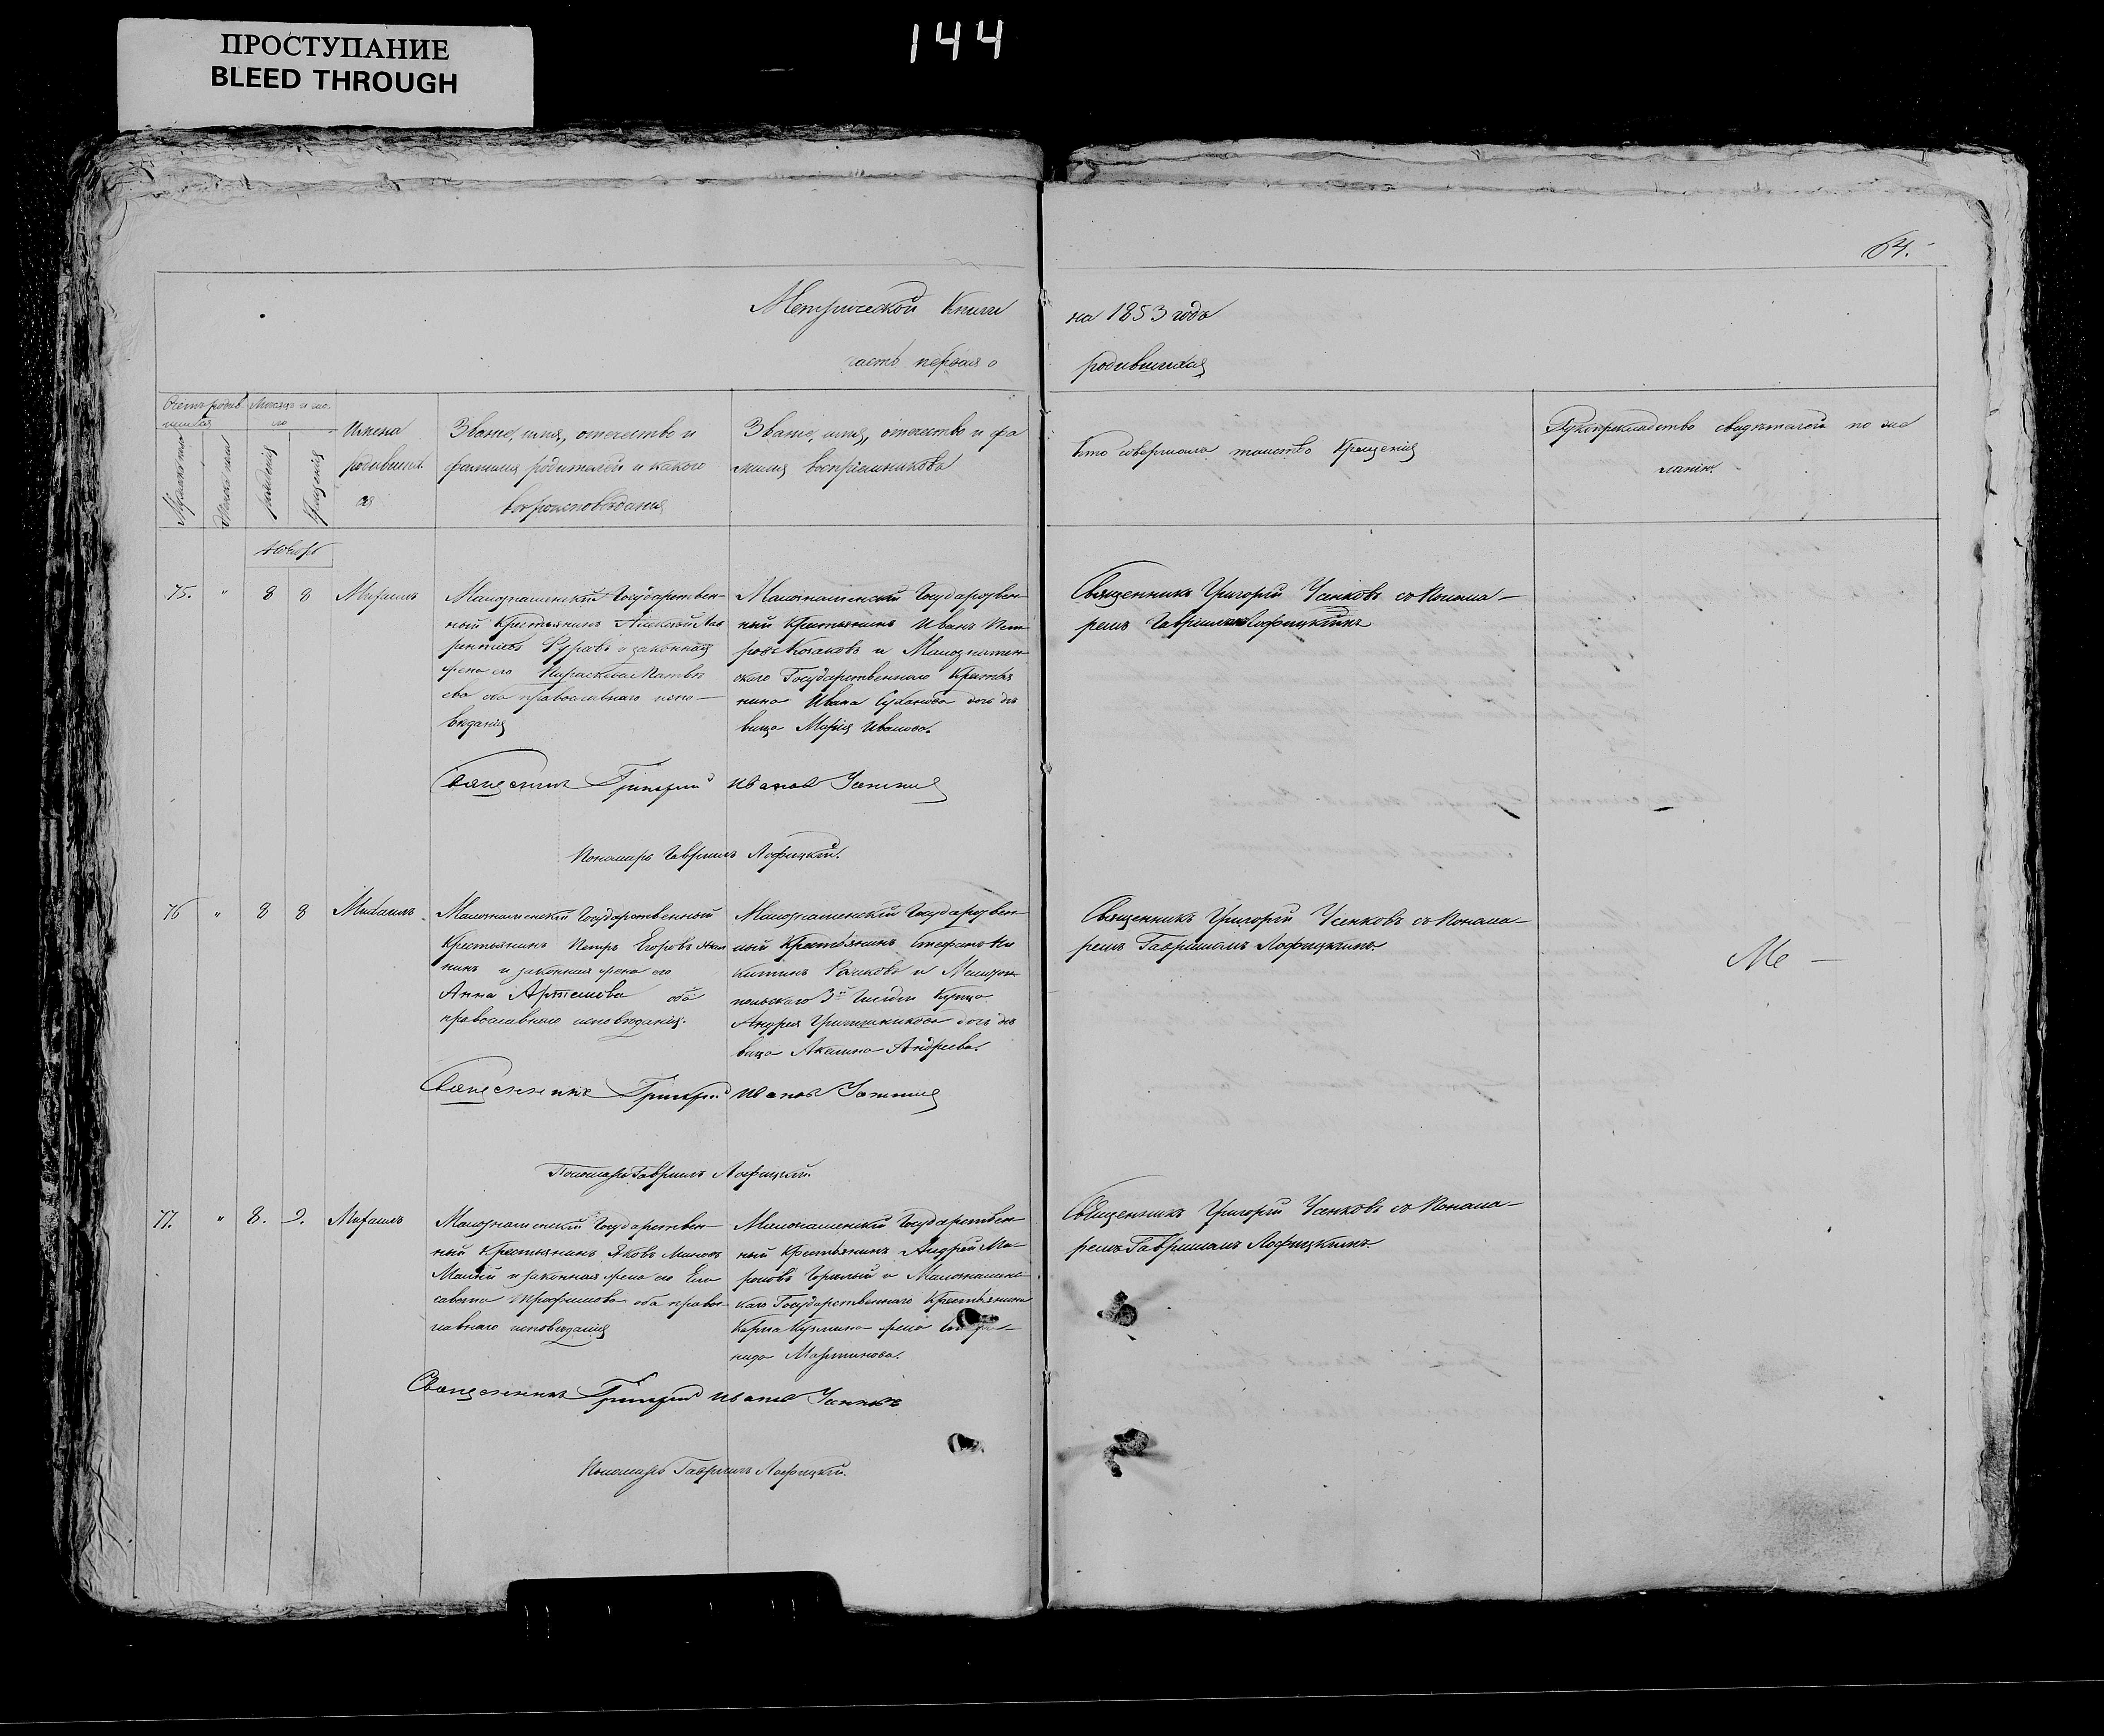 ПРОСТУПАНИЕ
BLEED THROUGH
144
64.
Метрической Книги на 1853 годъ
часть первая о родившихся
Мужеска пола
Женска пола
рожденія
Крещенія
Имена
родивших
ся
Званіе, имя, отечество и
фамилія родителей и какого
вѣроисповѣданія
Званіе, имя, отечество и фа
милія воспріемниковъ
Кто совершалъ таинство Крещенія
Рукоприкладство свидѣтелей по же
ланію.
75. " 8 8 Михаилъ
Малознаменскій Государствен-
ный Крестьянинъ Алексѣй
и законная
жена его Параскева Матвѣ
ева оба православнаго испо-
вѣданія
Малознаменскій Государствен-
ный Крестьянинъ Иванъ Пет
ровъ Козаковъ и Малознамен-
скаго Государственнаго Крестья
нина Ивана дочь дѣ
вица Марія Иванова.
Священникъ Григорій Усенковъ съ Понома-
ремъ Гавріиломъ Лофицкимъ
Священникъ Григорій Ивановъ
Пономарь Гавріилъ Лофицкій.
76 " 8 8 Михаилъ
Малознаменскій Государственный
Крестьянинъ Петръ Егоровъ
и законная жена его
Анна Артемова оба
православнаго исповѣданія.
Малознаменскій Государствен-
ный Крестьянинъ Стефанъ Ни
китинъ и Мелито
польскаго 3й Гильдіи Купца
Андрея дочь дѣ
вица Акилина Андреева.
Священникъ Григорій Усенковъ съ Понома-
ремъ Гавріиломъ Лофицкимъ.
Ме —
Священникъ Григорій Ивановъ
Пономарь Гавріилъ Лофицкій.
77. " 8. 9. Михаилъ
Малознаменскій Государствен-
ный Крестьянинъ Яковъ
и законная жена его Ели
савета Трофимова оба правос
лавнаго исповѣданія
Малознаменскій Государствен-
ный Крестьянинъ Андрей Ма-
роновъ и Малознаменс
каго Государственнаго Крестьянина
Карпа Кузмина жена
нида Мартинова.
Священникъ Григорій Усенковъ съ Понома-
ремъ Гавріиломъ Лофицкимъ.
Священникъ Григорій Ивановъ
Пономарь Гавріилъ Лофицкій.